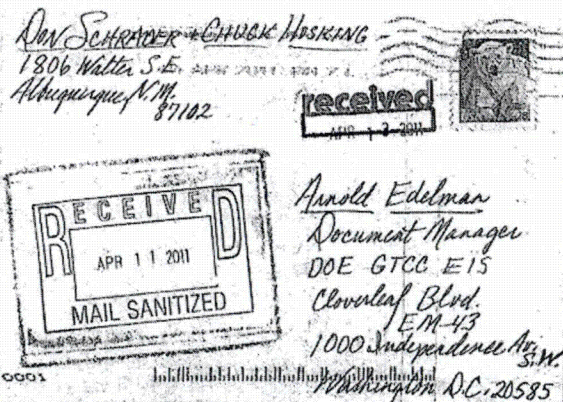 Don Schrader + Chuck Hosking
1806 Walter S.E.
Albuquerque, N.M.
87102
received
APR 13 2011
RECEIVED
APR 11 2011
MAIL SANITIZED
Arnold Edelman
Document Manager
DOE GTCC EIS
Cloverleaf Blvd.
EM-43
1000 Independence Av.
S.W.
Washington D.C. 20585
0001